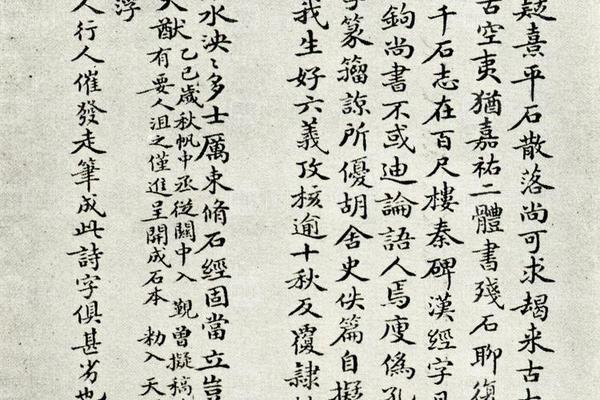 疑熹平石散落尚可求朅来古大
古空夷猶嘉祐二體書殘石聊復
千石志在百尺樓秦碑漢經字
鉤尚書不或迪論語人焉廋僞孔
字篆籀諒所優胡舍史佚篇自擬
我生好六義攷核逾十秋反覆隸
水泱〻多士厲東脩石經固當立豈
大猷乙巳歲秋帆中丞從關中入覲曾擬稿
有要人沮之僅進呈開成石本勑入天
浮
人行人催發走筆成此詩字俱甚劣也